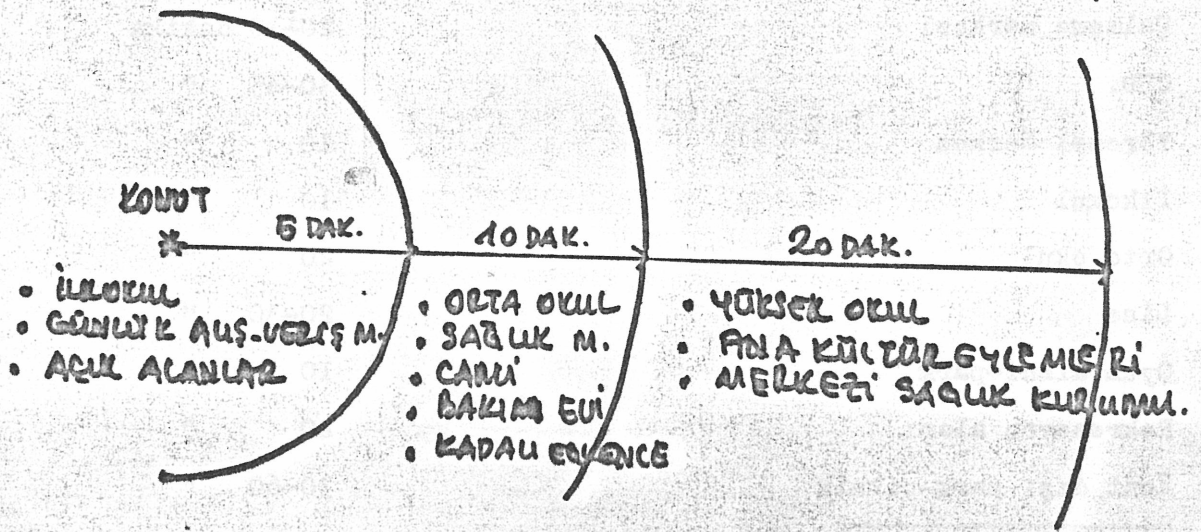 KONUT
5 DAK.
10 DAK.
20 DAK.
• İLKOKUL
• GÜNLÜK ALIŞ-VERİŞ M.
• AÇIK ALANLAR
• ORTA OKUL
• SAĞLIK M.
• CAMİ
• BAKIM EVİ
• KAPALI EĞLENCE
• YÜKSEK OKUL
• ANA KÜLTÜR EYLEMLERİ
• MERKEZİ SAĞLIK KURUMU.